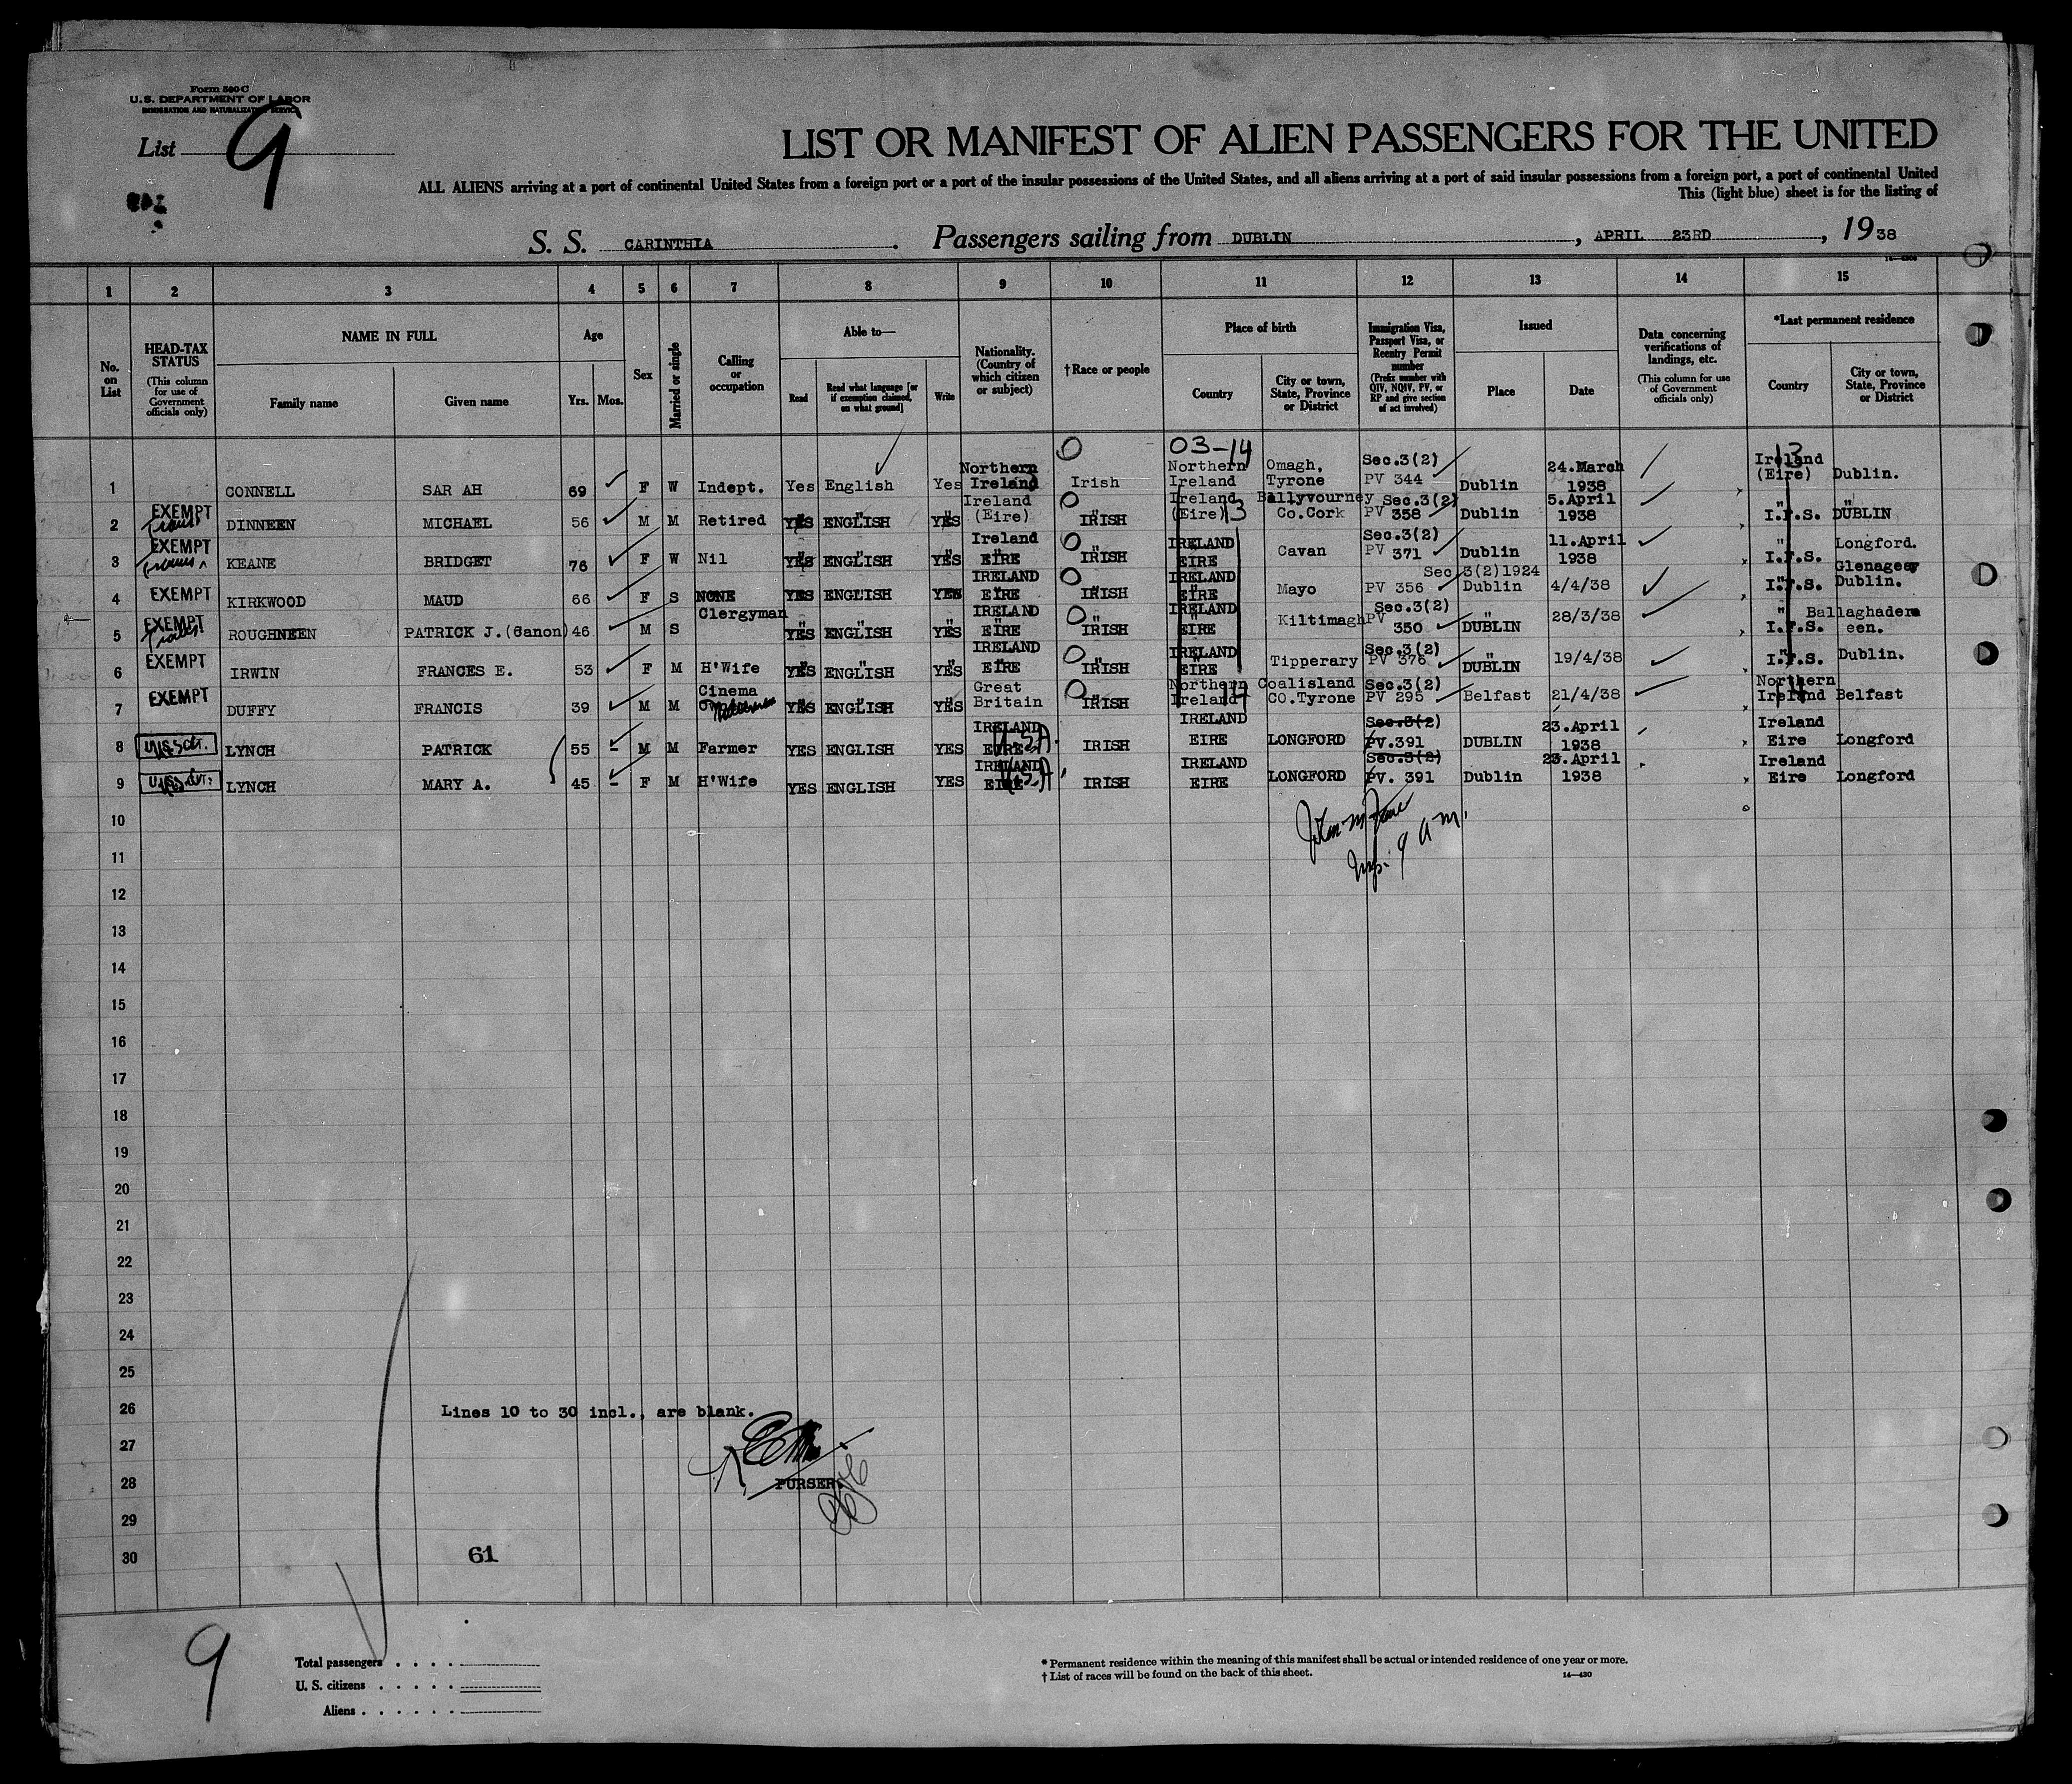 Form 500 C
U. S. DEPARTMENT OF LABOR
IMMIGRATION AND NATURALIZATION SERVICE
List 9
LIST OR MANIFEST OF ALIEN PASSENGERS FOR THE UNITED
ALL ALIENS arriving at a port of continental United States from a foreign port or a port of the insular possessions of the United States, and all aliens arriving at a port of said insular possessions from a foreign port, a port of continental United
This (light blue) sheet is for the listing of
S. S. CARINTHIA. Passengers sailing from DUBLIN, APRIL 23RD, 1938
1 2 3 4 5 6 7 8 9 10 11 12 13 14 15
No. on List
HEAD-TAX STATUS
(This column for use of Government officials only)
NAME IN FULL
Family name
Given name
Age
Yrs. Mos.
Sex
Married or single
Calling or occupation
Able to—
Read
Read what language [or if exemption claimed, on what ground]
Write
Nationality. (Country of which citizen or subject)
† Race or people
Place of birth
Country
City or town, State, Province or District
Immigration Visa, Passport Visa, or Reentry Permit number
(Prefix number with QIV, NQIV, PV, or RP and give section of act involved)
Issued
Place
Date
Data concerning verifications of landings, etc.
(This column for use of Government officials only)
*Last permanent residence
Country
City or town, State, Province or District
0 03-14 13
1 CONNELL SAR AH 69 F W Indept. Yes English Yes Northern Ireland Irish Northern Ireland Omagh, Tyrone Sec.3(2) PV 344 Dublin 24.March 1938 Ireland (Eire) Dublin.
2 EXEMPT DINNEEN MICHAEL 56 M M Retired YES ENGLISH YES Ireland (Eire) 0 IRISH Ireland (Eire) 13 Ballyvourney Co.Cork Sec.3(2) PV 358 Dublin 5.April 1938 " I.F.S. " DUBLIN
3 EXEMPT KEANE BRIDGET 76 F W Nil YES ENGLISH YES Ireland EIRE 0 IRISH IRELAND EIRE Cavan Sec.3(2) PV 371 Dublin 11.April 1938 " I.F.S. Longford.
4 EXEMPT KIRKWOOD MAUD 66 F S NONE YES ENGLISH YES IRELAND EIRE 0 IRISH IRELAND EIRE Mayo Sec 3(2)1924 PV 356 Dublin 4/4/38 I.F.S. Glenageay Dublin.
5 EXEMPT ROUGHNEEN PATRICK J.(Canon) 46 M S Clergyman YES ENGLISH YES IRELAND EIRE 0 IRISH IRELAND EIRE Kiltimagh Sec.3(2) PV 350 " DUBLIN 28/3/38 " I.F.S. Ballaghadereen.
6 EXEMPT IRWIN FRANCES E. 53 F M H'Wife YES ENGLISH YES IRELAND EIRE 0 IRISH IRELAND EIRE Tipperary Sec.3(2) PV 376 DUBLIN 19/4/38 I.F.S. Dublin.
7 EXEMPT DUFFY FRANCIS 39 M M Cinema YES ENGLISH YES Great Britain 0 IRISH Northern Ireland 14 Coalisland CO.Tyrone Sec.3(2) PV 295 Belfast 21/4/38 Northern Ireland Belfast
8 LYNCH PATRICK 55 – M M Farmer YES ENGLISH YES IRELAND EIRE U.S.A. IRISH IRELAND EIRE LONGFORD Sec.3(2) PV.391 DUBLIN 23.April 1938 Ireland Eire Longford
9 LYNCH MARY A. 45 – F M H'Wife YES ENGLISH YES IRELAND EIRE U.S.A. IRISH IRELAND EIRE LONGFORD Sec.3(2) PV. 391 Dublin 23.April 1938 Ireland Eire Longford
10
11
9 a m.
12
13
14
15
16
17
18
19
20
21
22
23
24
25
26 Lines 10 to 30 incl., are blank.
27
28 PURSER.
29
30 61
9
Total passengers . . . .
U. S. citizens . . . . .
Aliens . . . . . .
* Permanent residence within the meaning of this manifest shall be actual or intended residence of one year or more.
† List of races will be found on the back of this sheet.
14—430